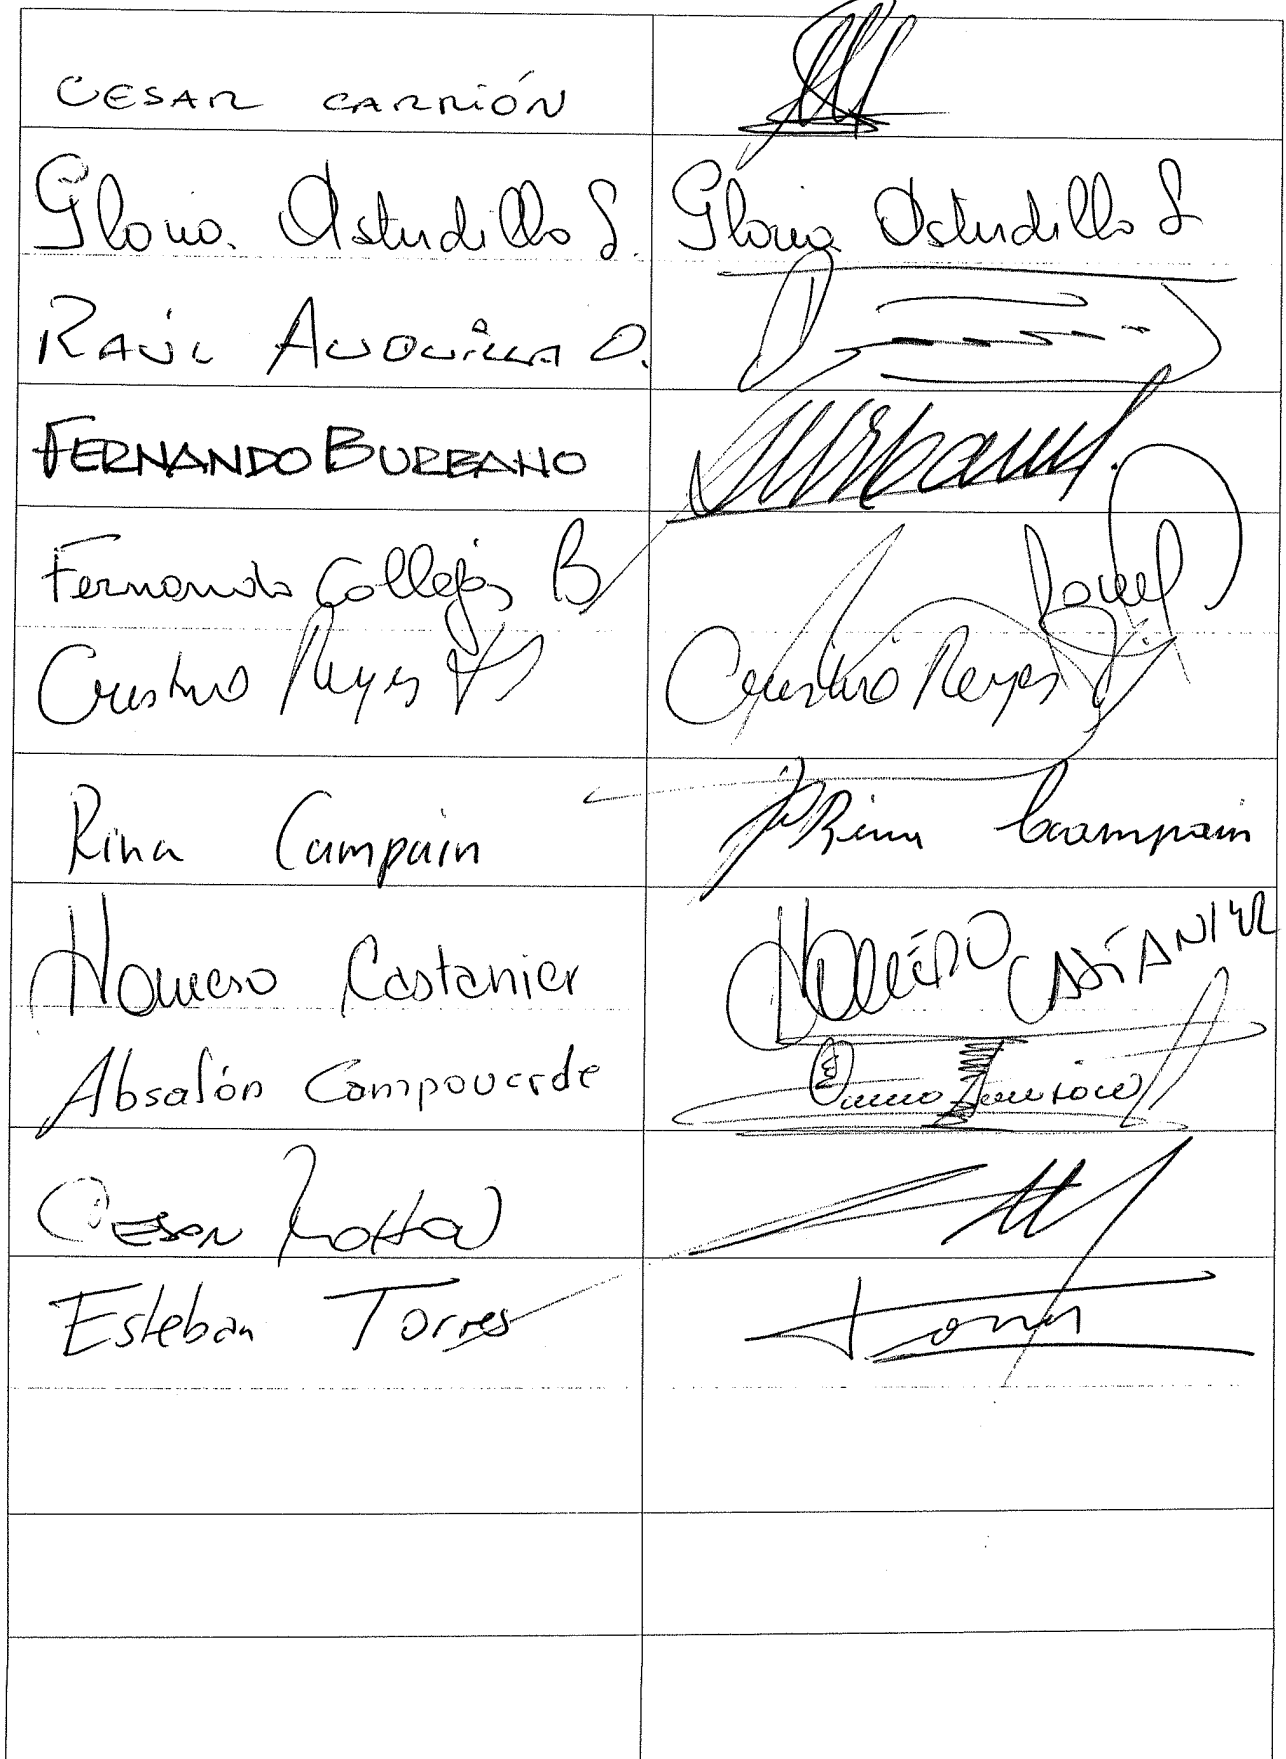 CESAR CARRIÓN
Gloria Astudillo S. Gloria Astudillo S
RAÚL AUQUILLA O.
FERNANDO BURBANO Burbano
Fernando Callejas B
Cristina Reyes Cristina Reyes
Rina Campain Rina Campain
Homero Castanier HOMERO CASTANIER
Absalón Campoverde
CESAR
Esteban Torres Torres